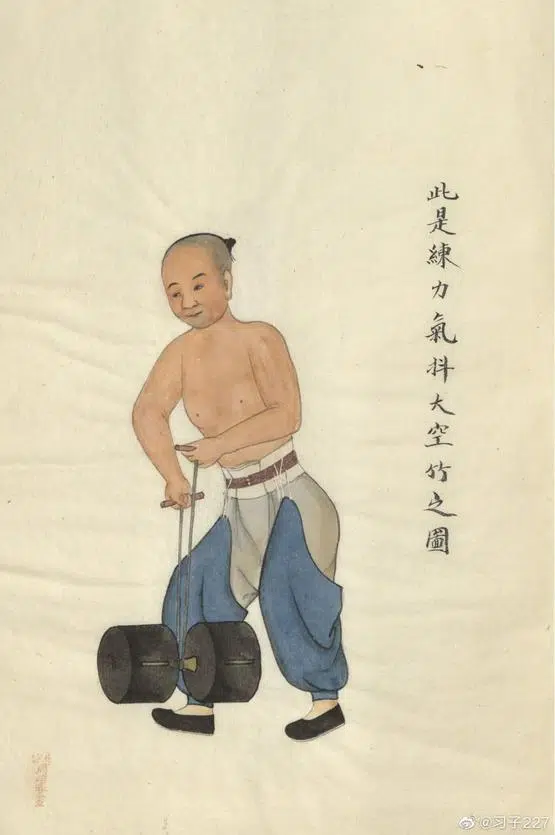 此是練力氣抖大空竹之圖
@习子227